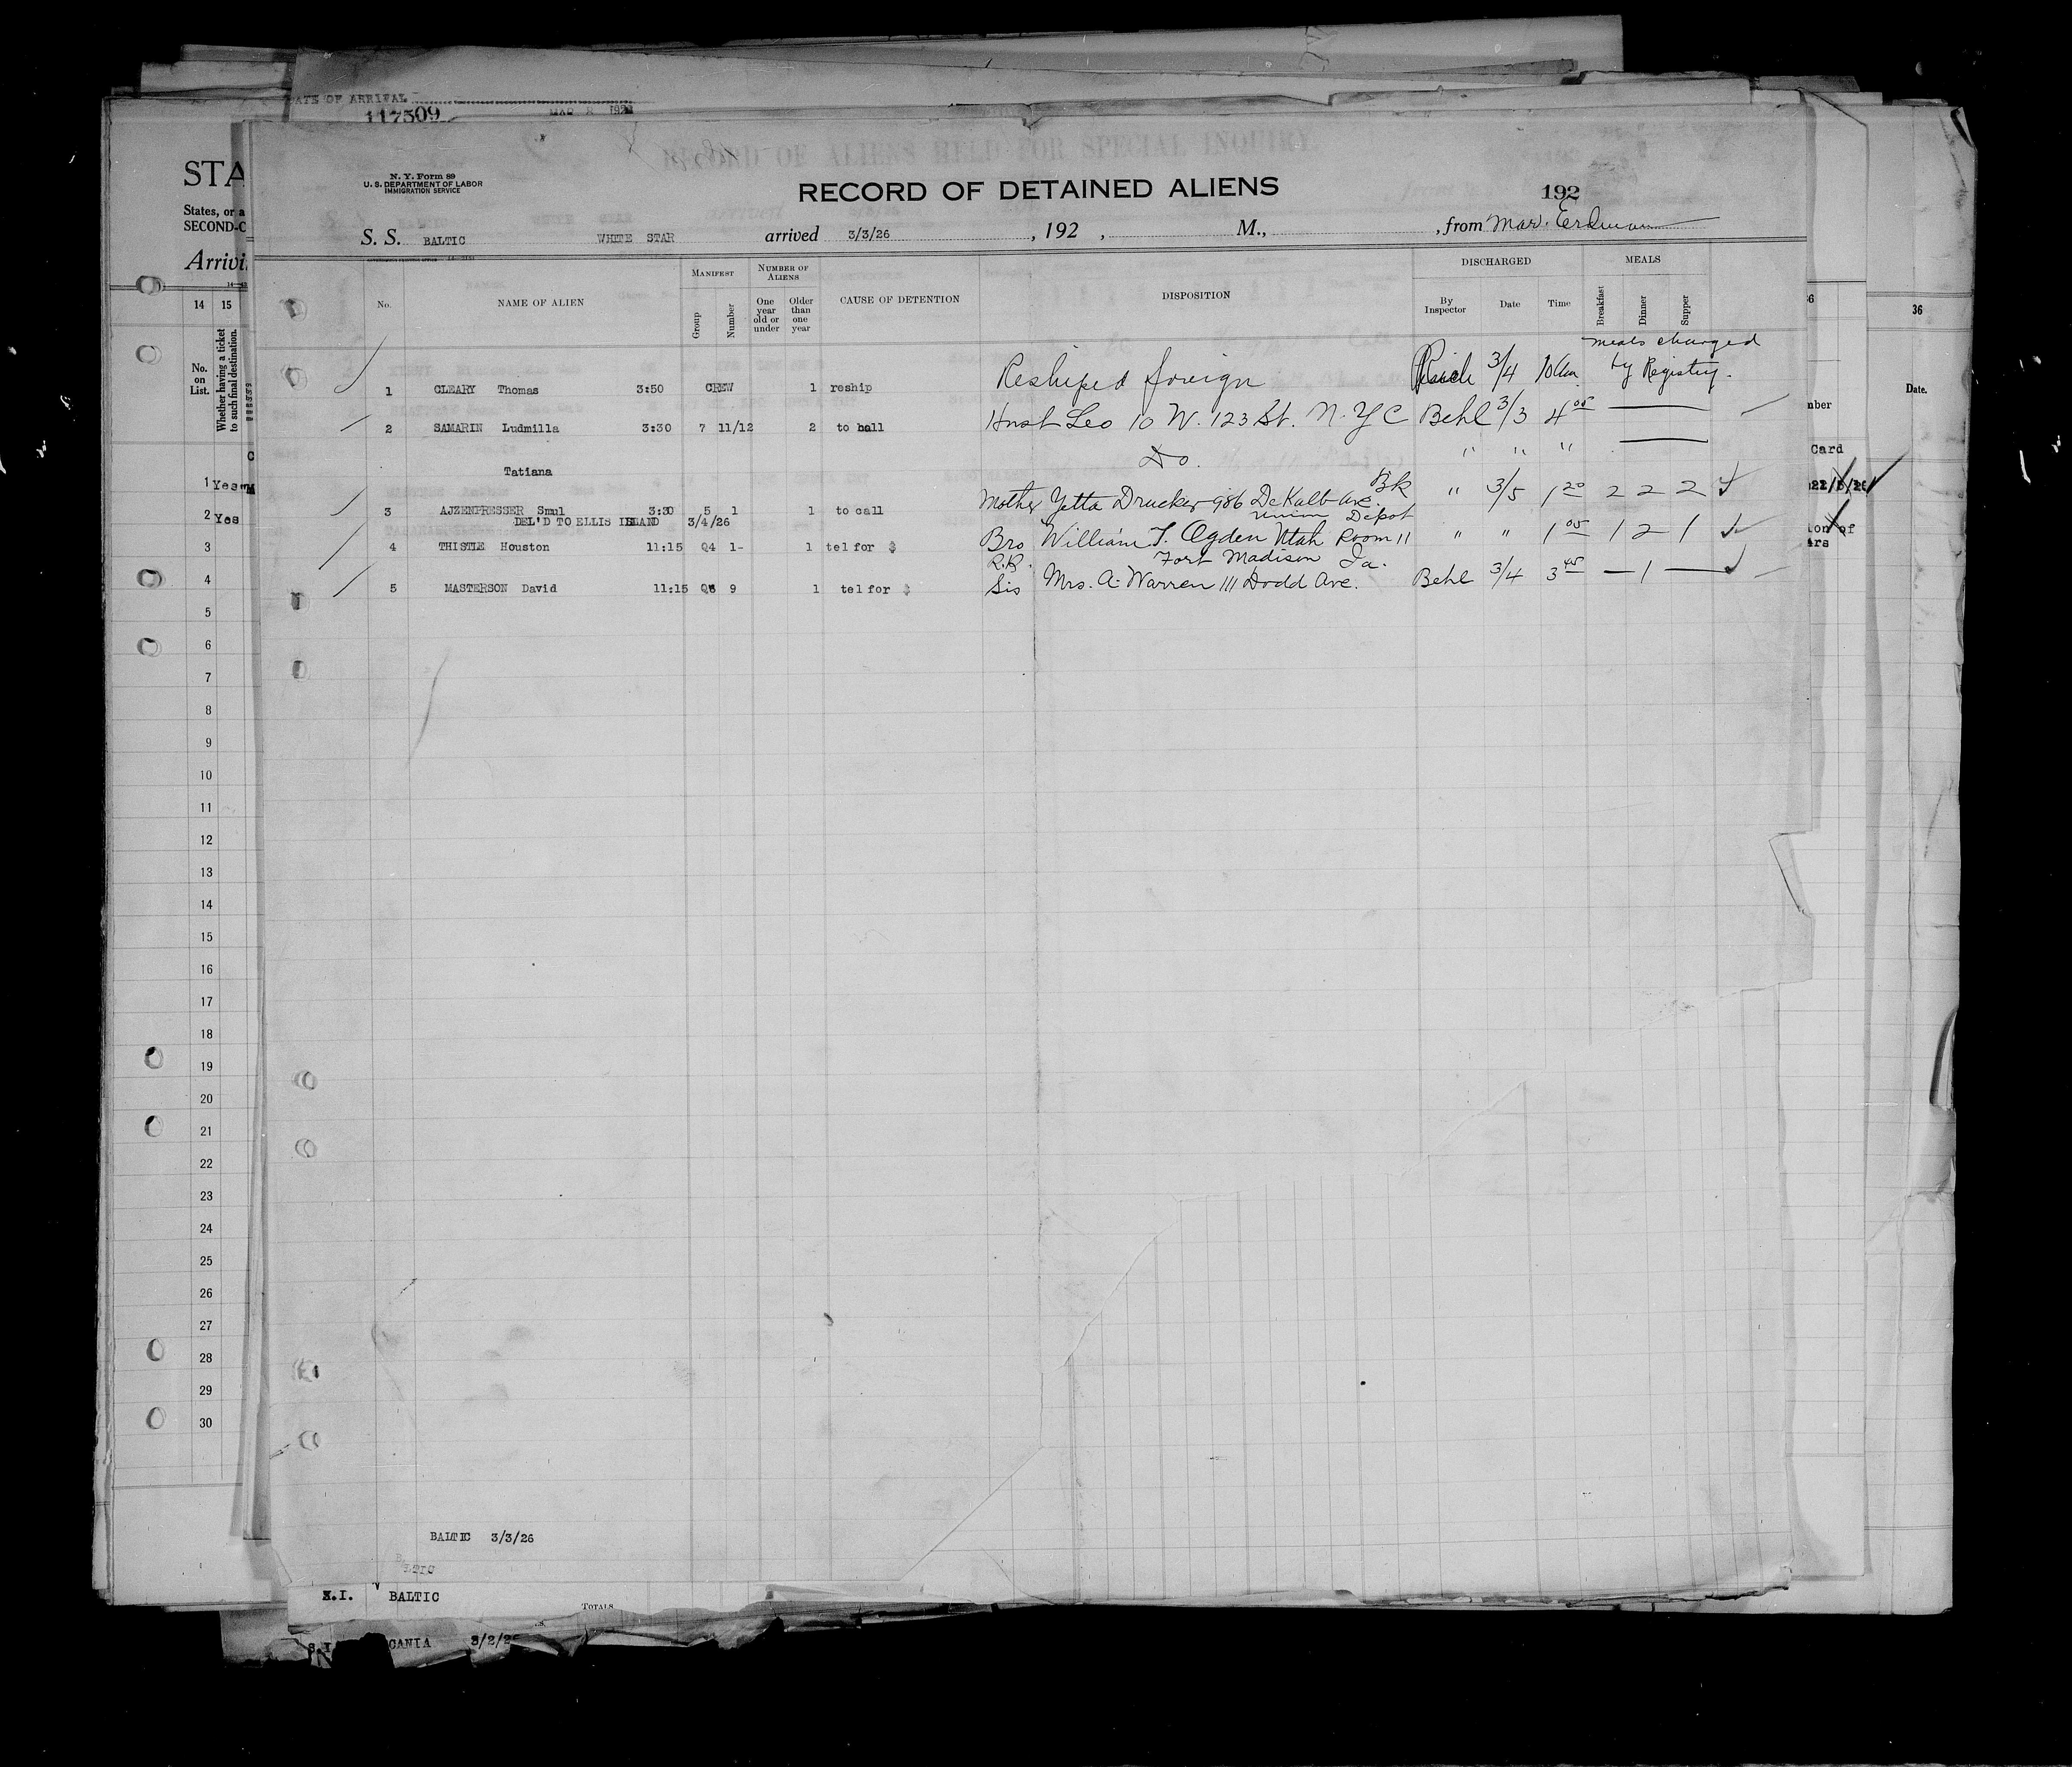 DATE OF ARRIVAL
117509
RECORD OF ALIENS HELD FOR SPECIAL INQUIRY
STA
N. Y. Form 89
U. S. DEPARTMENT OF LABOR
IMMIGRATION SERVICE
RECORD OF DETAINED ALIENS
192
States, or a
SECOND-C
S. S. BALTIC WHITE STAR arrived 3/3/26, 192 , M., , from Mar. Erdman
Arrivi
MANIFEST NUMBER OF ALIENS DISCHARGED MEALS
No. NAME OF ALIEN Group Number One year old or under Older than one year CAUSE OF DETENTION DISPOSITION By Inspector Date Time Breakfast Dinner Supper
14 15 36 36
No. on List. Whether having a ticket to such final destination. Date.
meals charged
1 CLEARY Thomas 3:50 CREW 1 reship Reshiped foreign 3/4 10am by Registry.
2 SAMARIN Ludmilla 3:30 7 11/12 2 to call Husb Leo 10 W. 123 St. N.Y.C Behl 3/3 4 05 —
Tatiana Do. " " " —
3 AJZENPRESSER Smul 3:30 5 1 1 to call Mother Yetta Drucker 986 DeKalb Ave. Bk " 3/5 1 20 2 2 2
DEL'D TO ELLIS ISLAND 3/4/26
Union Depot
4 THISTLE Houston 11:15 Q4 1- 1 tel for $ Bro William T. Ogden Utah Room 11 " " 1 05 1 2 1
R.R. Fort Madison Ia.
5 MASTERSON David 11:15 9 1 tel for $ Sis Mrs. A. Warren 111 Dodd Ave. Behl 3/4 3 45 — 1 —
mber
Card
1 Yes
2 Yes
3
4
5
6
7
8
9
10
11
12
13
14
15
16
17
18
19
20
21
22
23
24
25
26
27
28
29
30
BALTIC 3/3/26
BALTIC
TOTALS
CANIA 3/2/26